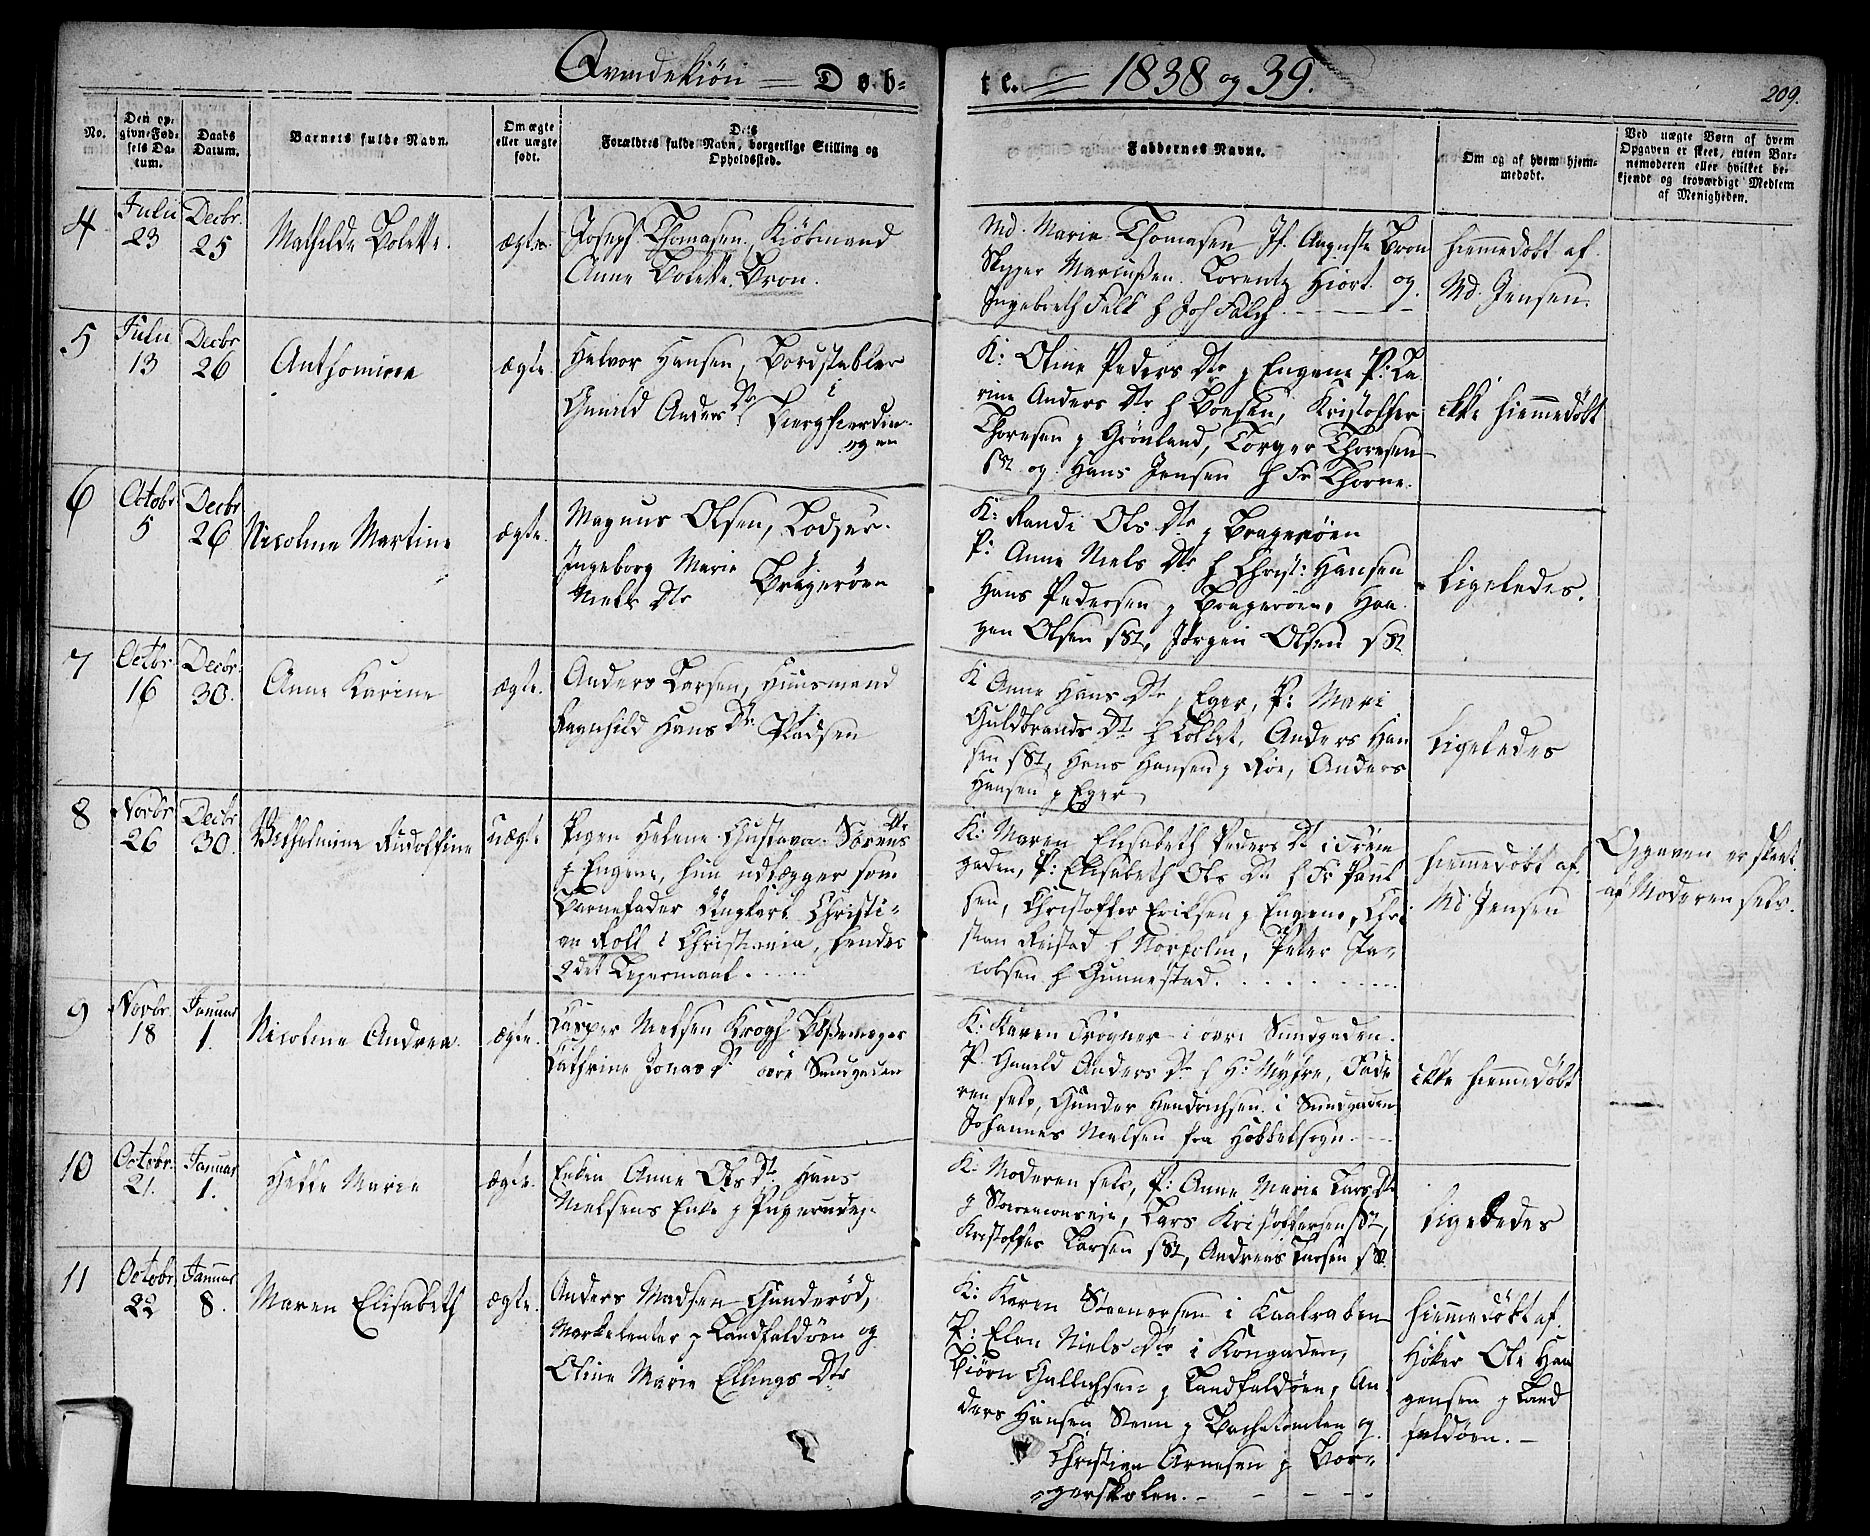 Qvindekiøn — Døb-
te. — 1838 og 39.
209.
No.
Den opgivne Fødsels Datum.
Daabs Datum.
Barnets fulde Navn.
Om ægte eller uægte født.
Forældres fulde Navn, Dets borgerlige Stilling og Opholdssted.
Faddernes Navne.
Om og af hvem hjemmedøbt.
Ved uægte Børn af hvem Opgaven er skeet, enten Barnemoderen eller hvilket bekjendt og troværdigt Medlem af Menigheden.
4
Julii 23
Decbr. 25
Mathilde Bolette.
ægte.
Joseph Thomasen, Kiøbmand
Anne Bolette Bron.
Md. Marie Thomasen Jf. Auguste Bron
Skipper Marcussen Lorentz Hiort og
Ingebreth Falk h Joh Falch
hiemmedøbt af
Md. Jensen.
5
Julii 13
Decbr 26
Anthomine
ægte.
Halvor Hansen, Bordstabler
Gunild Anders Dtr i Biergfierdingen
K: Oline Peders Dtr p Engene P: La
rine Anders Dtr h Boesen, Kristoffer
Thoresen p Grønland, Torger Thoresen
sst og Hans Jensen h Fr Thorne.
ikke hiemmedøbt
6
Octobr 5
Decbr 26
Nicoline Martine
ægte.
Magnus Olsen, Lodser
Ingeborg Marie
Niels Dtr
p Bragerøen
K: Randi Ols Dtr p Bragerøen
P: Anne Niels Dtr h Christ: Hansen
Hans Pedersen p Bragerøen, Haa
gen Olsen sst, Jørgen Olsen sst
ligeledes.
7
Octbr 16
Decbr 30.
Anne Karine
ægte.
Anders Larsen, Huusmand
Ragnhild Hans Dtr. p Pladsen
K Anne Hans Dtr p Eger, P: Mari
Guldbrands Dtr h Collet, Anders Han
sen sst, Hans Hansen p Røe, Anders
Hansen p Eger
ligeledes
8
Novbr 26
Decbr 30.
Vilhelmine Rudolfine
uægte
Pigen Helene Gustava Sørens Dtr
p Engene, hun udlægger som
Barnefader Ungkarl Christi-
an Roll i Christiania, hendes
2det Leiermaal.
K: Maren Elisabeth Peders Dt i Strøm
gaden, P: Elisabeth Ols Dtr h Fr Paul
sen, Christoffer Eriksen p Engene, Chri
stian Reistad h Norholm, Peter Ja-
cobsen h Gunnestad.
hiemmedøbt af
Md Jensen
Opgaven er skeet
af Moderen selv.
9
Novbr. 18
Januar 1.
Nicoline Andrea.
ægte.
Casper Nielsen Krogh Bøssemager
Cathrine Jonas D. øvre Sundgaden
K: Karen Frogner i øvre Sundgaden.
P. Gunild Anders Dtr h Hr Myhre, Fade
ren selv, Gunder Hendrichsen i Sundgaden
Johannes Nielsen fra Hobbelsogn.
ikke hiemmedøbt
10
Octobr. 21.
Januar 1.
Helle Marie
ægte.
Enken Anne Ols Dtr. Hans
Nielsens Enke p
K: Moderen selv, P: Anne Marie Lars Dtr
p Lars Kristoffersen sst,
Kristoffer Larsen sst, Andreas Larsen sst
ligeledes
11
Octobr. 22
Januar 8.
Maren Elisabeth
ægte.
Anders Madsen Gunderød,
Marketenter p Landfaldøen og
Oline Marie Ellings Dtr
K: Karen Steenersen i Kaalraben
P: Elen Niels Dtr i Kongaden,
Biørn Gallichsen p Landfaldøen, An
ders Hansen Steen p Bachetomten og
Christian Arnesen p Bor-
gerskolen.
hiemmedøbt af
Høker Ole Haa
gensen p Land
faldøen.